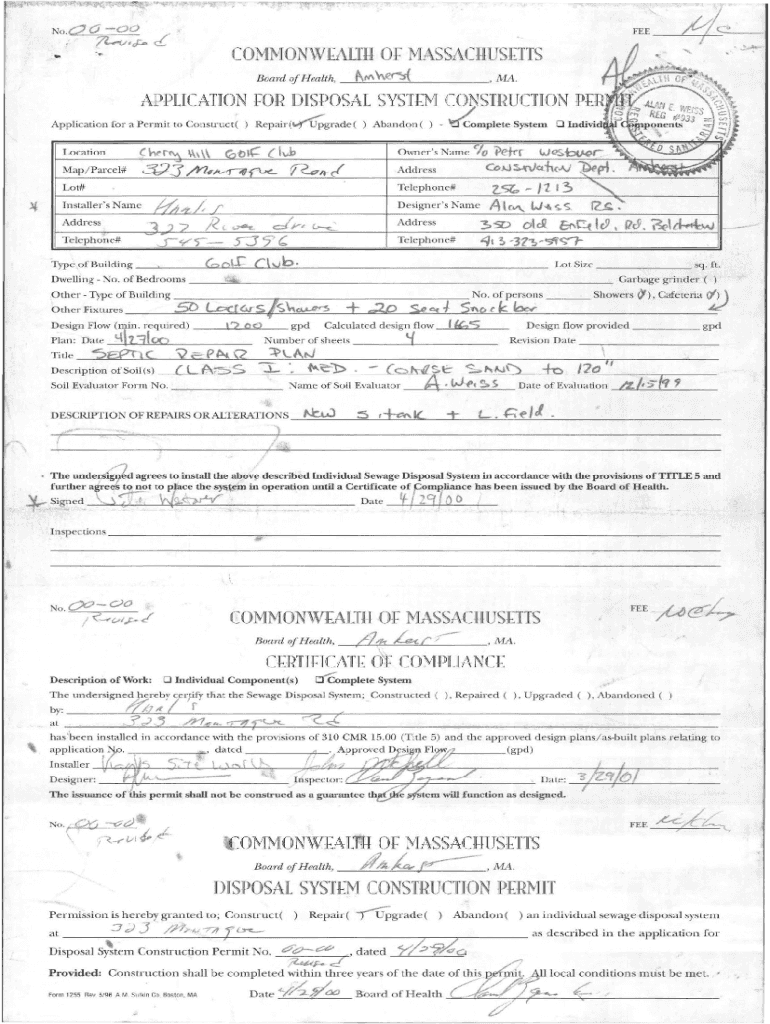 No. 00-00 FEE N/C
Revised
COMMONWEALTH OF MASSACHUSETTS
Board of Health, Amherst, MA.
APPLICATION FOR DISPOSAL SYSTEM CONSTRUCTION PERMIT
COMMONWEALTH OF MASSACHUSETTS
ALAN E. WEISS
REG #933
REGISTERED SANITARIAN
Application for a Permit to Construct( ) Repair(✓) Upgrade( ) Abandon( ) - ☑ Complete System ☐ Individual Components
Location Cherry Hill Golf Club Owner's Name % Peter Westover
Map/Parcel# 323 Montague Road Address Conservation Dept. Amherst
Lot# Telephone# 256-1213
Installer's Name Designer's Name Alan Weiss R.S.
Address 327 River drive Address 350 Old Enfield. Rd. Belchertow
Telephone# 545-5396 Telephone# 413-323-5957
Type of Building Golf Club. Lot Size sq. ft.
Dwelling - No. of Bedrooms Garbage grinder ( )
Other - Type of Building No. of persons Showers (✓), Cafeteria (✓)
Other Fixtures 50 Lockers/Showers + 20 Seat Snack bar
Design Flow (min. required) 1200 gpd Calculated design flow 1665 Design flow provided gpd
Plan: Date 4/27/00 Number of sheets 4 Revision Date
Title SEPTIC REPAIR PLAN
Description of Soil(s) CLASS I: MED. - COARSE SAND to 120"
Soil Evaluator Form No. Name of Soil Evaluator A. Weiss Date of Evaluation 12/15/99
DESCRIPTION OF REPAIRS OR ALTERATIONS New S. tank + L. Field.
The undersigned agrees to install the above described Individual Sewage Disposal System in accordance with the provisions of TITLE 5 and
further agrees to not to place the system in operation until a Certificate of Compliance has been issued by the Board of Health.
Signed Date 4/29/00
Inspections
No. 00-00 FEE
Revised
COMMONWEALTH OF MASSACHUSETTS
Board of Health, Amherst, MA.
CERTIFICATE OF COMPLIANCE
Description of Work: ☐ Individual Component(s) ☐ Complete System
The undersigned hereby certify that the Sewage Disposal System; Constructed ( ), Repaired ( ), Upgraded ( ), Abandoned ( )
by:
at 323 Montague Rd
has been installed in accordance with the provisions of 310 CMR 15.00 (Title 5) and the approved design plans/as-built plans relating to
application No. , dated . Approved Design Flow (gpd)
Installer Site Works
Designer: Inspector: Date: 3/29/01
The issuance of this permit shall not be construed as a guarantee that the system will function as designed.
No. 00-00 FEE
Revised
COMMONWEALTH OF MASSACHUSETTS
Board of Health, Amherst, MA.
DISPOSAL SYSTEM CONSTRUCTION PERMIT
Permission is hereby granted to; Construct( ) Repair(✓) Upgrade( ) Abandon( ) an individual sewage disposal system
at 323 Montague as described in the application for
Disposal System Construction Permit No. 00-00, dated 4/29/00
Revised
Provided: Construction shall be completed within three years of the date of this permit. All local conditions must be met.
Form 1255 Rev. 5/96 A.M. Sulkin Co. Boston, MA Date 4/29/00 Board of Health